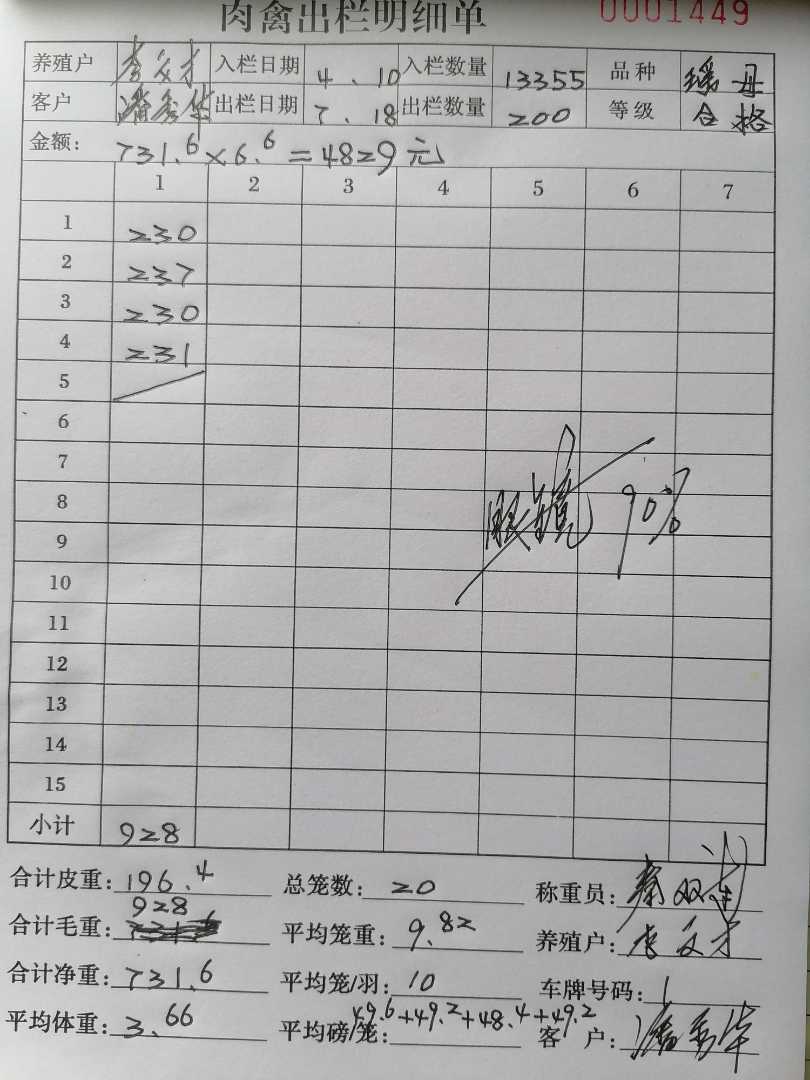 肉禽出栏明细单 0001449
养殖户 李文才 入栏日期 4.10 入栏数量 13355 品种 瑶母
客户 潘秀华 出栏日期 7.18 出栏数量 200 等级 合格
金额: 731.6×6.6=4829元
1 2 3 4 5 6 7
1 230
2 237
3 230
4 231
5
6
7
8 90%
9
10
11
12
13
14
15
小计 928
合计皮重: 196.4 总笼数: 20 称重员:
928
合计毛重: 平均笼重: 9.82 养殖户: 李文才
合计净重: 731.6 平均笼/羽: 10 车牌号码: 1
平均体重: 3.66 平均磅/笼: 49.6+49.2+48.4+49.2 客户: 潘秀华